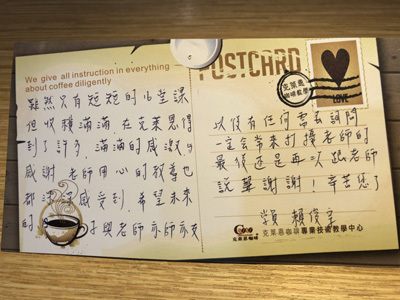 We give all instruction in everything
about coffee diligently
POSTCARD
克萊恩
咖啡教學
LOVE
雖然只有短短的16堂課
但收穫滿滿,在克萊恩得
到了許多,滿滿的感激
感謝老師用心的教導也
都深深感受到,希望未來
的 子與老師亦師亦友
以後有任何需要詢問
一定會常來打擾老師的
最後還是再次跟老師
說聲謝謝!辛苦您了
學員 賴俊宇
克萊恩咖啡
克萊恩咖啡專業技術教學中心